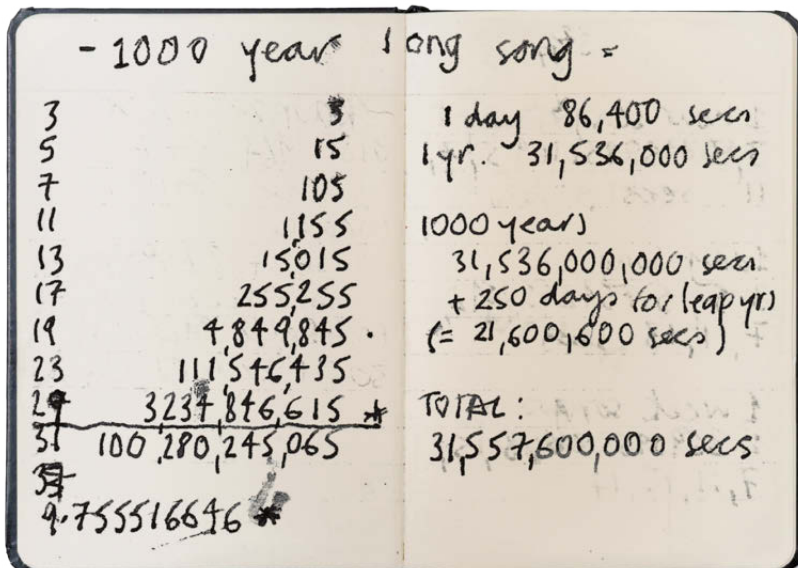 - 1000 year long song =
3 3
5 15
7 105
11 1155
13 15,015
17 255,255
19 4,849,845 .
23 111,546,435
29 3234,846,615 *
31 100,280,245,065
9.755516646 *
1 day 86,400 secs
1 yr. 31,536,000 secs
1000 years
31,536,000,000 secs
+ 250 days for leap yrs
(= 21,600,600 secs)
TOTAL:
31,557,600,000 secs